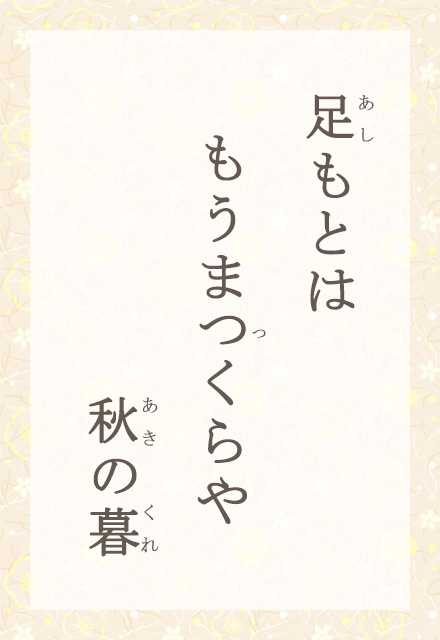 足もとは
もうまつくらや
秋の暮
あし
つ
あき
くれ